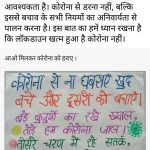 आवश्यकता है। कोरोना से डरना नहीं, बल्कि
इससे बचाव के सभी नियमों का अनिवार्यता से
पालन करना है। इस बात का हमें ध्यान रखना है
कि लॉकडाउन खत्म हुआ है कोरोना नहीं।
आओ मिलकर कोरोना को हराए ।
कोरोना से ना घबराएं खुद
बचें और दूसरों को बचाएं।
बड़े बुजुर्गों का रखें ख्याल,
तीसरे चरण में रहें सतर्क,